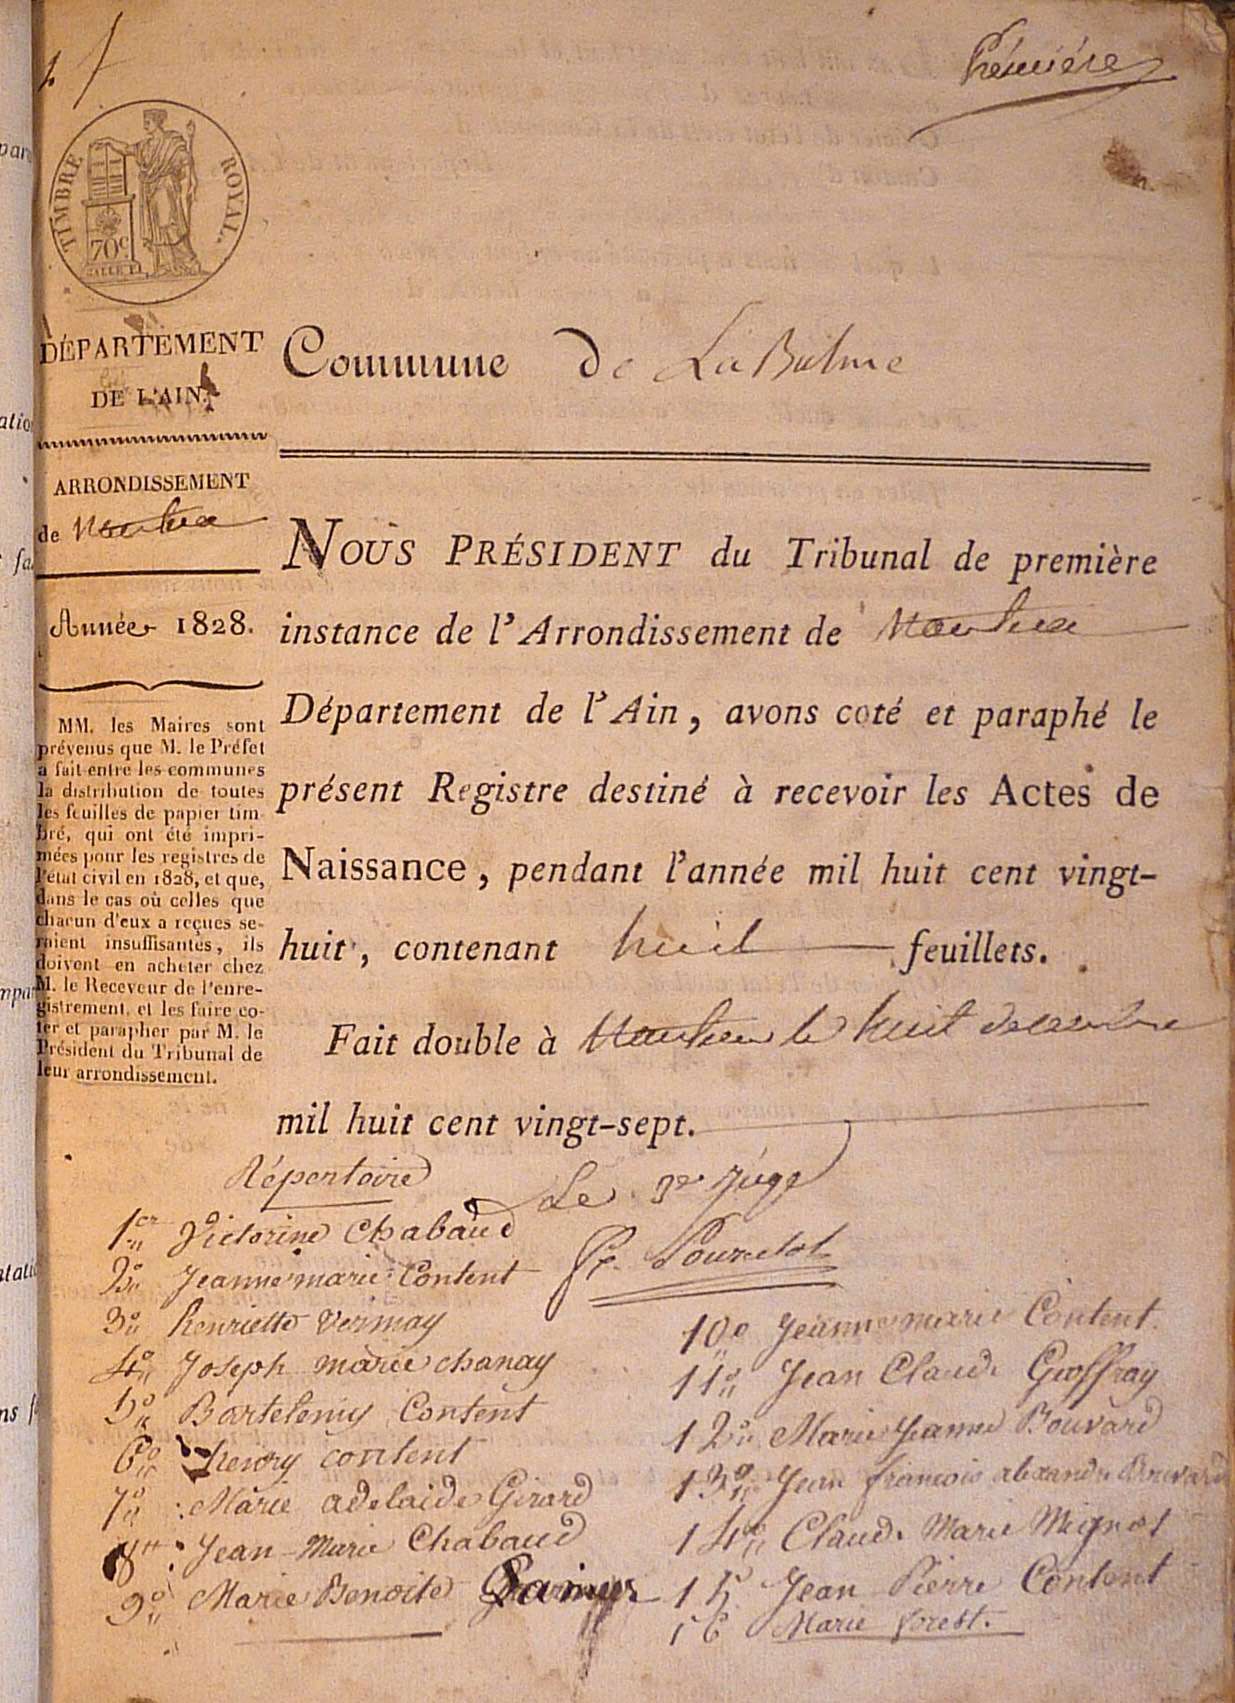 Première
TIMBRE ROYAL.
70c
DÉPARTEMENT
DE L'AIN.
ARRONDISSEMENT
de Nantua
Année 1828.
MM. les Maires sont
prévenus que M. le Préfet
a fait entre les communes
la distribution de toutes
les feuilles de papier tim-
bré, qui ont été impri-
mées pour les registres de
l'état civil en 1828, et que,
dans le cas où celles que
chacun d'eux a reçues se-
raient insuffisantes, ils
doivent en acheter chez
M. le Receveur de l'enre-
gistrement, et les faire co-
ter et parapher par M. le
Président du Tribunal de
leur arrondissement.
Commune de La Balme
NOUS PRÉSIDENT du Tribunal de première
instance de l'Arrondissement de Nantua
Département de l'Ain, avons coté et paraphé le
présent Registre destiné à recevoir les Actes de
Naissance, pendant l'année mil huit cent vingt-
huit, contenant huit feuillets.
Fait double à Nantua le huit decembre
mil huit cent vingt-sept.
Le 3e Juge
Répertoire
1er Victorine Chabaud
2o Jeanne marie Content
3o henriette Vermay
4o Joseph marie chanay
5o Bartelemy Content
6o henry content
7o Marie adelaide Girard
8o Jean Marie Chabaud
9o Marie Benoite
10o Jeanne marie Content.
11o Jean Claude Geoffray
12o Marie Jeanne Bouvard
13o Jean francois alexandre Bouvard
14o Claude Marie Mignot
15 Jean Pierre Content
16 Marie forest.